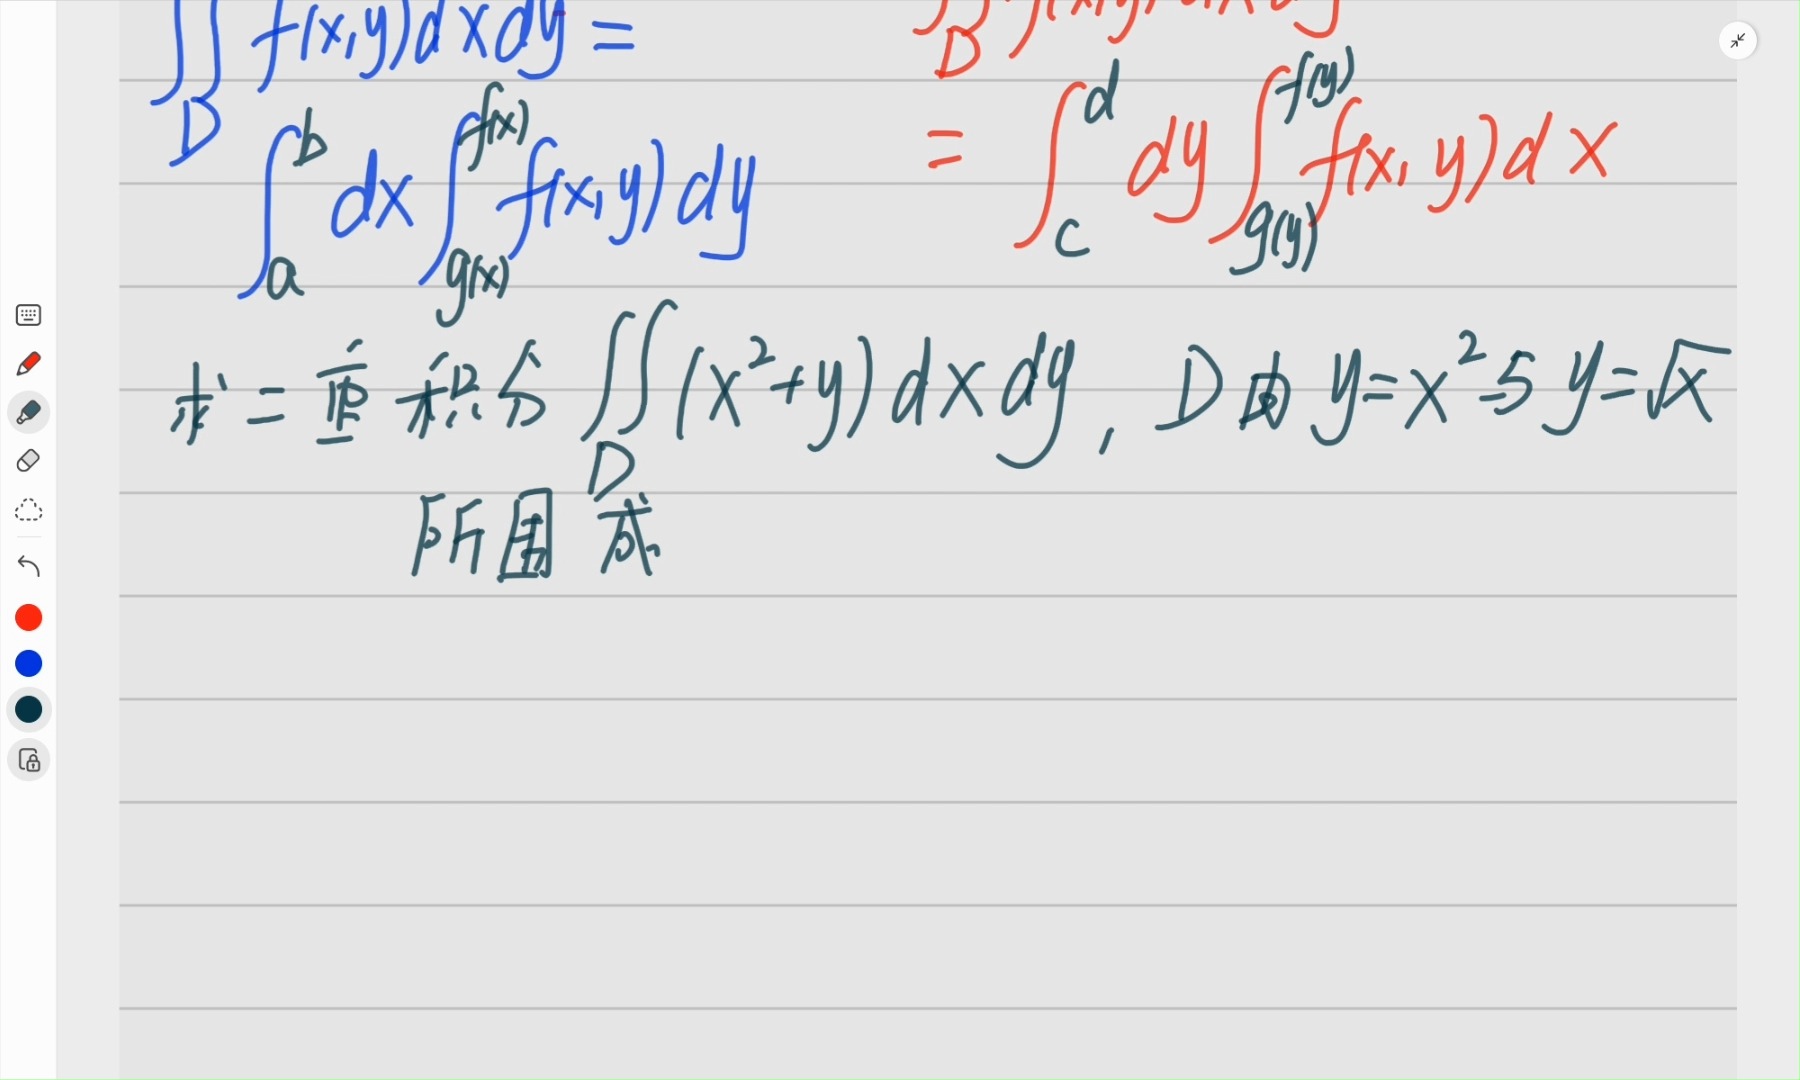 ∬_D f(x,y)dxdy =
∫_a^b dx ∫_{g(x)}^{f(x)} f(x,y)dy
∬_D f(x,y)dxdy
= ∫_c^d dy ∫_{g(y)}^{f(y)} f(x,y)dx
求二重积分 ∬_D (x²+y)dxdy, D由 y=x²与 y=√x
所围成